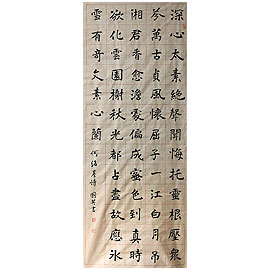 深心太素絕聲聞悔托靈根壓眾
芬萬古貞風懷屈子一江白月吊
湘君香愈澹處偏成蜜色到真時
欲化雲園榭秋光都占盡故應冰
雪有奇文素心蘭
何紹基詩